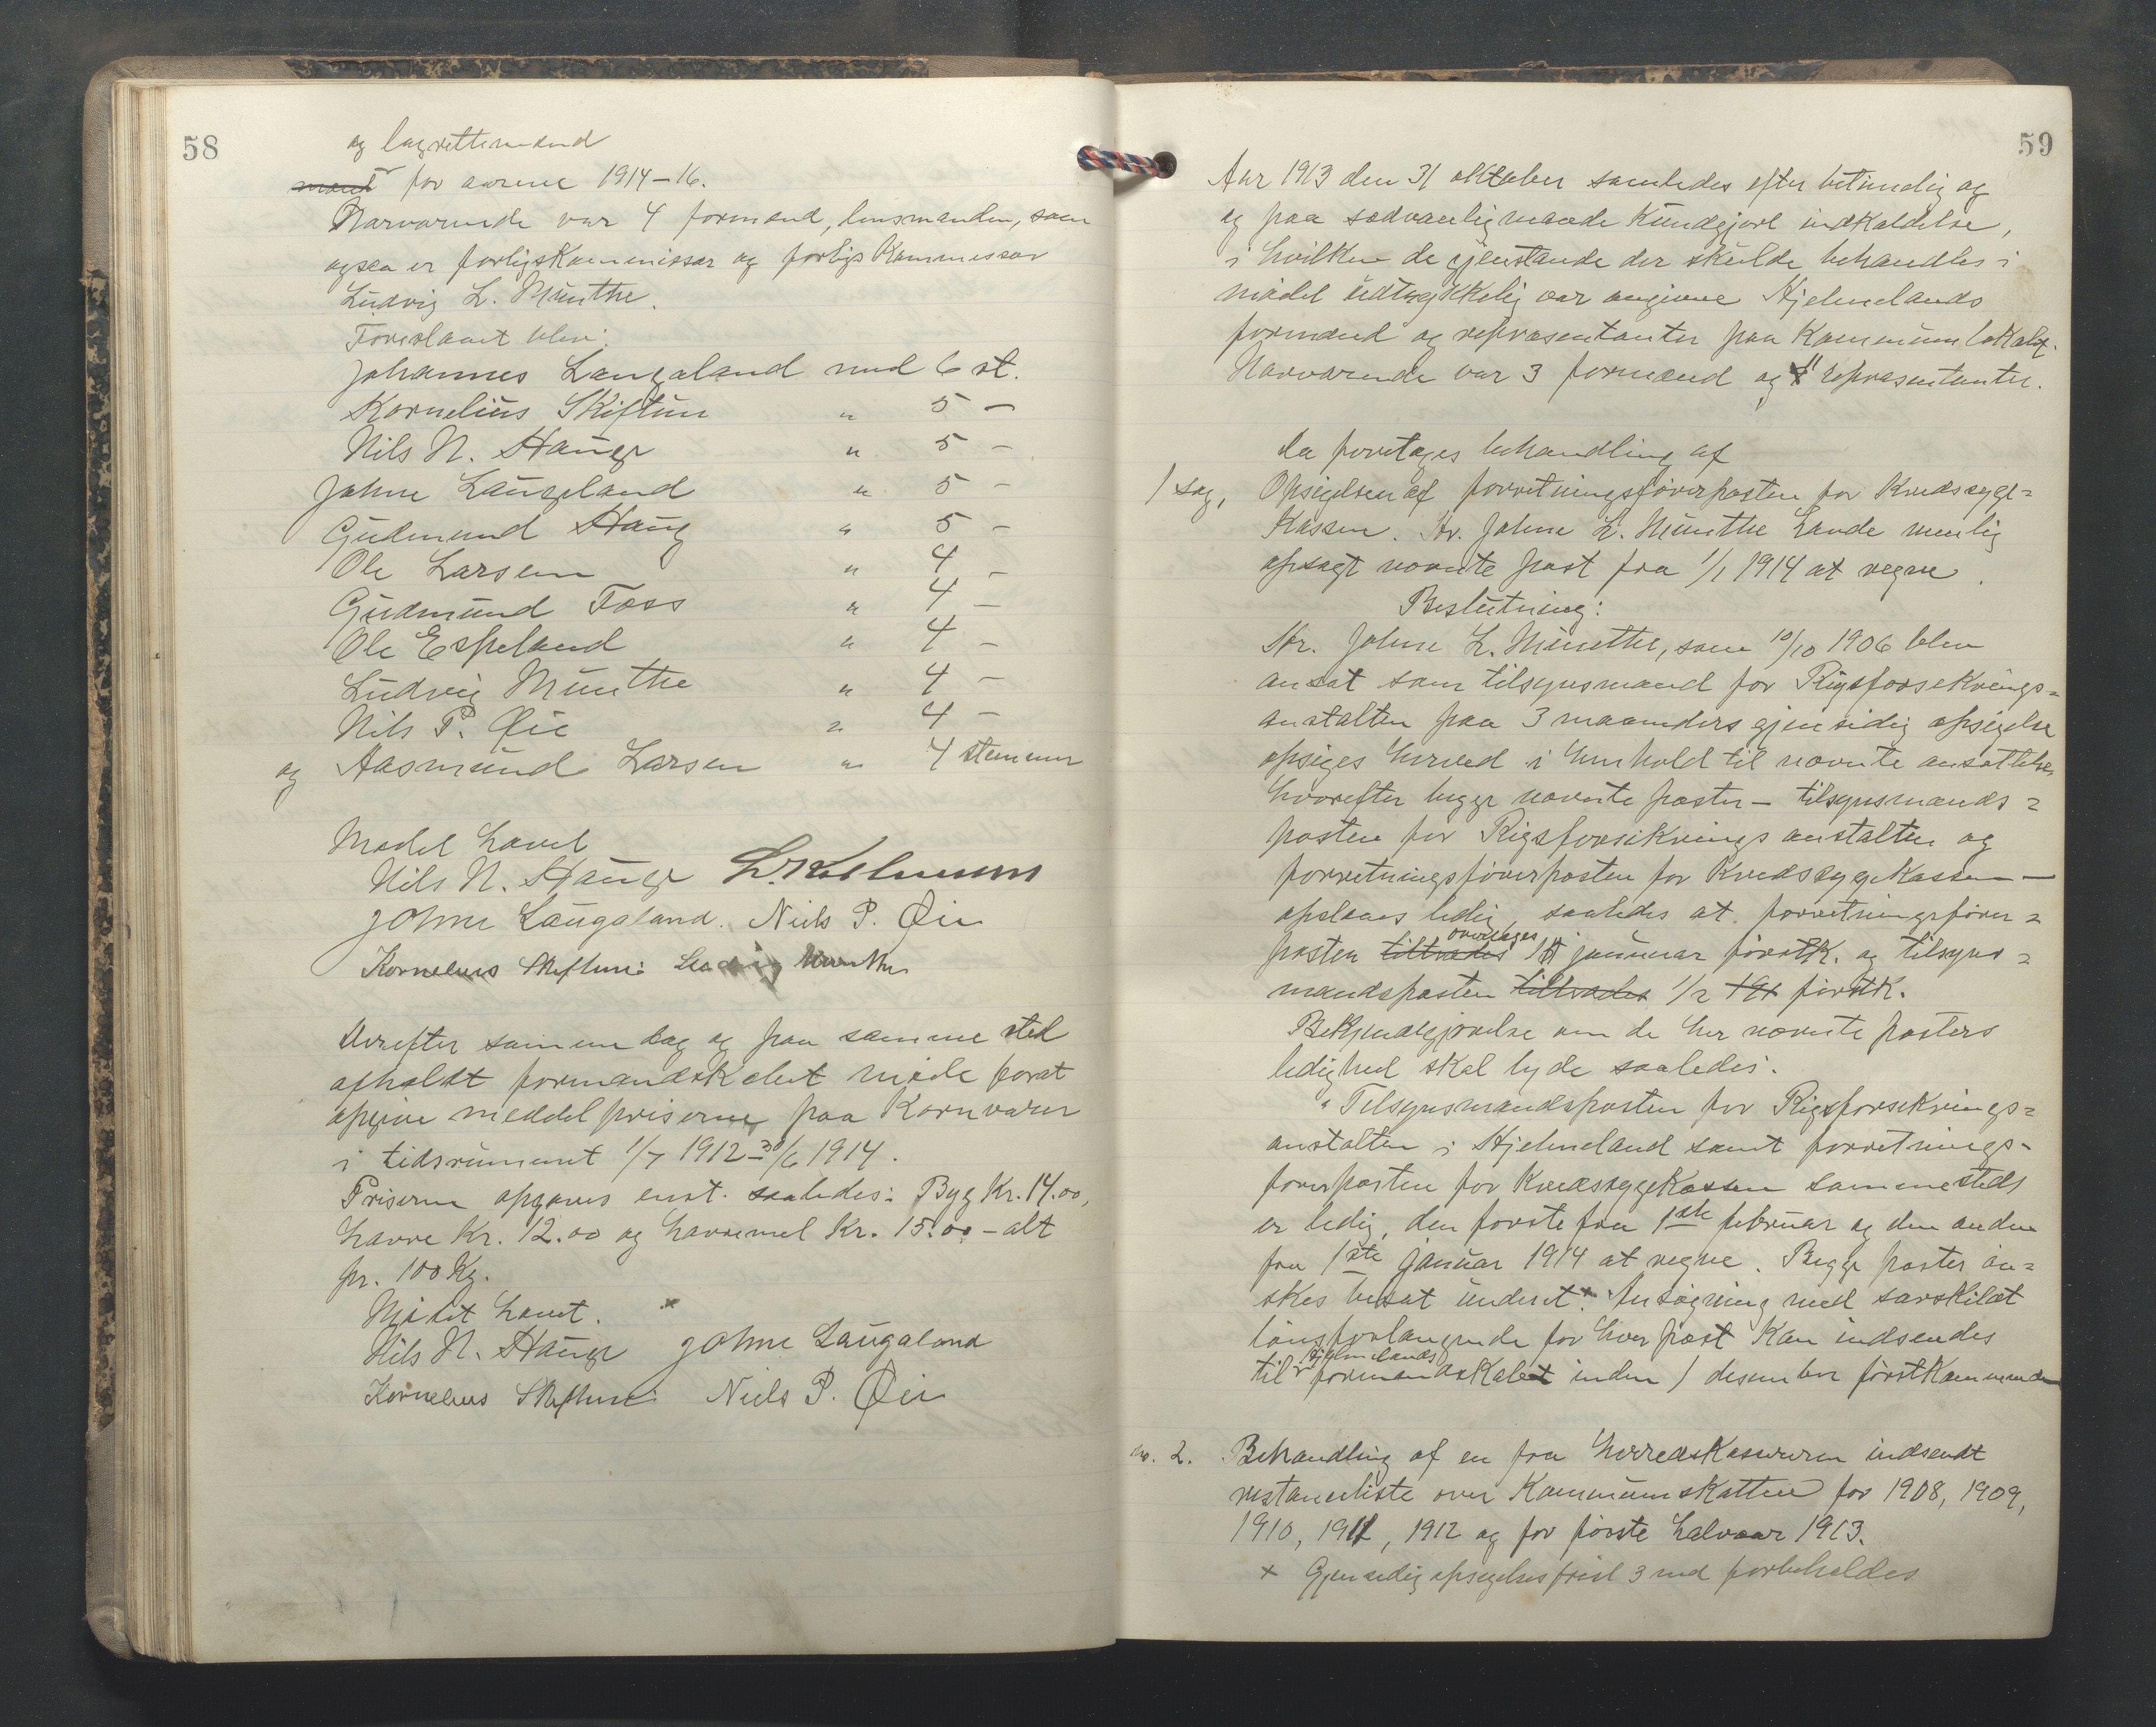 58
og lagrettemænd
mænd for aarene 1914-16.
Nærværende var 4 formænd, lensmanden, som
ogsaa er forligskommissær og forligskommissær
Ludvig L. Munthe.
Foreslaaet blev:
Johannes Laugaland med 6 st.
Kornelius Skiftun " 5 -
Nils N. Hauge " 5 -
Johne Laugaland " 5 -
Gudmund Haug " 5 -
Ole Larsen " 4 -
Gudmund Foss " 4 -
Ole Espeland " 4 -
Ludvig Munthe " 4 -
Nils P. Øie " 4 -
og Aasmund Larsen " 4 stemmer
Mødet hævet
Nils N. Hauge
Johne Laugaland. Niels P. Øie
Kornelius Skiftun: Ludvig Munthe
Derefter samme dag og paa samme sted
afholdt formandskabet møde forat
opgive meddelpriserne paa kornvarer
i tidsrummet 1/7 1912-30/6 1914.
Priserne opgaves enst. saaledes: Byg Kr. 14.00,
havre Kr. 12.00 og havremel Kr. 15.00 - alt
pr. 100 Kg.
Mødet hævet.
Nils N. Hauge Johne Laugaland
Kornelius Skiftun: Niels P. Øie
59
Aar 1913 den 31 oktober samledes efter betimelig og
og paa sædvanlig maade kundgjort indkaldelse,
i hvilken de gjenstande der skulde behandles i
mødet udtrykkelig var angivne Hjelmelands
formænd og repræsentanter paa kommunelokalet.
Nærværende var 3 formænd og 11 repræsentanter.
Da foretages behandling af
1 sag, Opsigelsen af forretningsførerposten for Kredssyge=
kassen. Hr. Johne L. Munthe havde nemlig
opsagt nævnte post fra 1/1 1914 at regne.
Beslutning:
Hr. Johne L. Munthe, som 10/10 1906 blev
ansat som tilsynsmand for Rigsforsikrings=
anstalten paa 3 maaneders gjensidig opsigelse
opsiges herved i henhold til nævnte ansættelse,
hvorefter begge nævnte poster - tilsynsmands=
posten for Rigsforsikringsanstalten og
forretningsførerposten for Kredssygekassen -
opslaaes ledig, saaledes at forretningsfører=
overtages
posten tiltrædes 1st januar førstk. og tilsyns=
mandsposten tiltrædes 1/2 191 førstk.
Bekjendtgjørelse om de her nævnte posters
ledighed skal lyde saaledes:
"Tilsynsmandsposten for Rigsforsikrings=
anstalten i Hjelmeland samt forretnings-
førerposten for Kredssygekassen sammesteds
er ledig, den første fra 1ste februar og den anden
fra 1ste januar 1914 at regne. Begge poster øn=
skes besat underet.x Ansøgning med særskildt
lønsforlangende for hver post kan indsendes
Hjelmelands
til formandskabet inden 1 desember førstkommende
no. 2. Behandling af en fra herredskassereren indsendt
restanceliste over kommuneskatten for 1908, 1909,
1910, 1911, 1912 og for første halvaar 1913.
x Gjensidig opsigelsesfrist 3 md forbeholdes